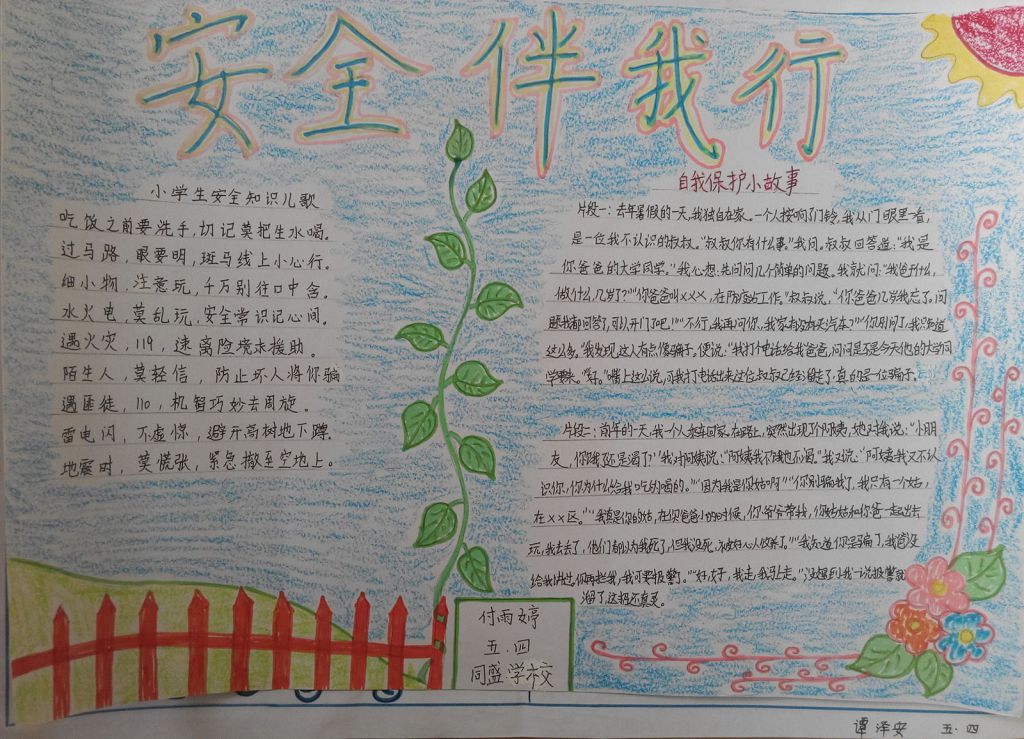 安全伴我行
小学生安全知识儿歌
吃饭之前要洗手,切记莫把生水喝。
过马路,眼要明,斑马线上小心行。
细小物,注意玩,千万别往口中含。
水火电,莫乱玩,安全常识记心间。
遇火灾,119,速离险境求援助。
陌生人,莫轻信,防止坏人将你骗
遇匪徒,110,机智巧妙去周旋。
雷电闪,不虚惊,避开高树地下蹲。
地震时,莫慌张,紧急撤至空地上。
自我保护小故事
片段一:去年暑假的一天,我独自在家。一个人按响了门铃,我从门眼里一看,
是一位我不认识的叔叔。“叔叔你有什么事。”我问。叔叔回答道:“我是
你爸爸的大学同学。”我心想:先问问几个简单的问题。我就问:“我爸叫什么,
做什么,几岁了?”“你爸爸叫×××,在防疫站工作。”叔叔说,“你爸爸几岁我忘了,问
题我都回答了,可以开门了吧!”“不行,我再问你,我家有没有汽车?”“你别问了,我只知道
这么多。”我发现,这人有点像骗子。便说:“我打个电话给我爸爸,问问是不是今天他的大学同
学要来。”“好。”嘴上这么说,可我打电话出来这位叔叔已经溜走了,真的是一位骗子。
片段二:前年的一天,我一个人走回家。在路上,突然出现了个阿姨,她对我说:“小朋
友,你饿了还是渴了?”我对阿姨说:“阿姨我不饿也不渴。”我又说:“阿姨我又不认
识你,你为什么给我吃的喝的。”“因为我是你姑啊”“你别骗我了,我只有一个姑,
在××区。”“我真是你的姑,在你爸爸小的时候,你爷爷带我,你姑姑和你爸一起出去
玩,我丢丢了,他们都以为我死了,但我没死,被好心人收养了。”“我知道你是骗子,我爸没
给我讲过,你再拦我,我可要报警了。”“好,好,我走,我马上走。”没想到我一说报警就
溜了,这招还真灵。
付雨婷
五.四
同盛学校
谭泽安 五.四